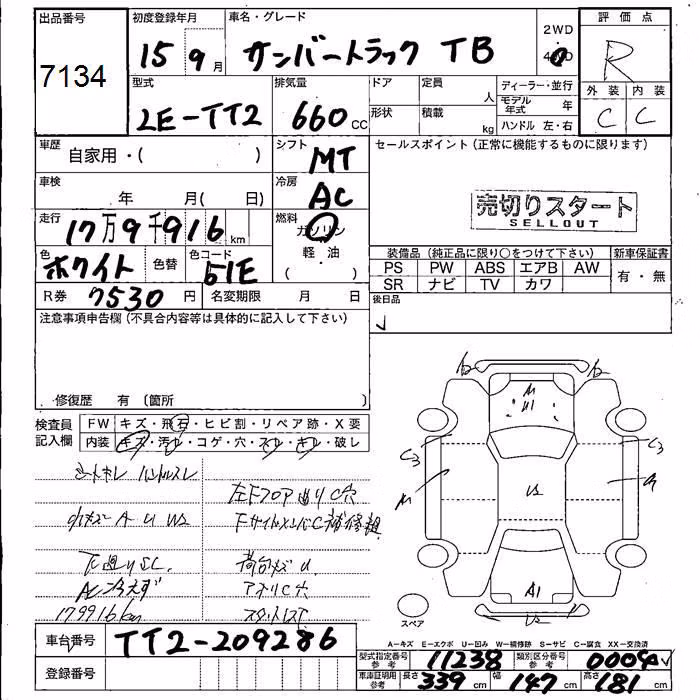 出品番号 初度登録年月 車名・グレード 評価点
7134 15年 9月 サンバートラック TB 2WD 4WD R
型式 排気量 ドア 定員 人 ディーラー・並行 外装 内装
LE-TT2 660cc 形状 積載 kg モデル年式 年 ハンドル 左・右 C C
車歴 自家用・( ) シフト MT セールスポイント (正常に機能するものに限ります)
車検 年 月( 日) 冷房 AC
売切りスタート
SELLOUT
走行 17万9千916km 燃料 ガソリン 軽・油 ( )
色 ホワイト 色替 色コード 51E
装備品 (純正品に限り○をつけて下さい) 新車保証書
PS PW ABS エアB AW 有・無
SR ナビ TV カワ
R券 7530円 名変期限 月 日 後日品
注意事項申告欄 (不具合内容等は具体的に記入して下さい)
修復歴 有 〔箇所 〕
検査員記入欄 FW キズ・飛石・ヒビ割・リペア跡・X要
内装 キズ・汚レ・コゲ・穴・スレ・キレ・破レ
シートキレ ハンドルスレ
左下フロア C穴
小キズ A U W2
下サイドメンバーC補修程
下廻りSC
荷台キズU
AC冷えず
アオリC穴
179916km
スタットレスT
C3 C3
A
U2
A1
スペア
車台番号 TT2-209286
A−キズ E−エクボ U−凹み W−補修跡 S−サビ C−腐食 XX−交換済
登録番号
型式指定番号 参考 11238 類別区分番号 参考 0004
車庫証明用 参考 長さ 339cm 幅 147cm 高さ 181cm